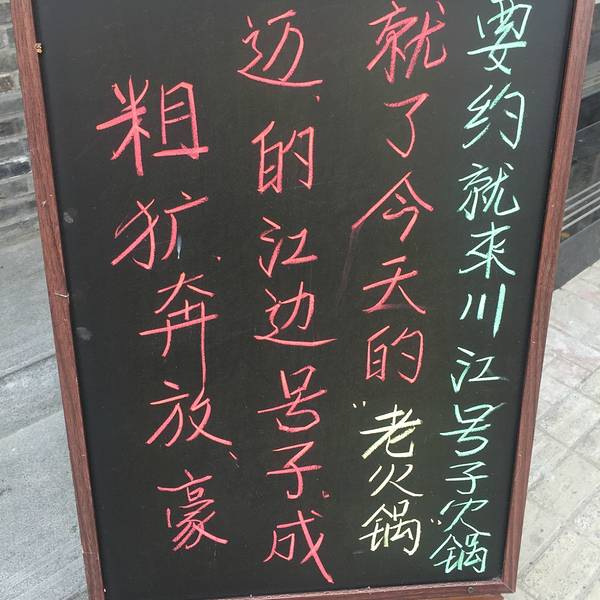 粗犷、奔放、豪
迈、的江边号子,成
就了今天的"老火锅"
要约就来川江号子火锅